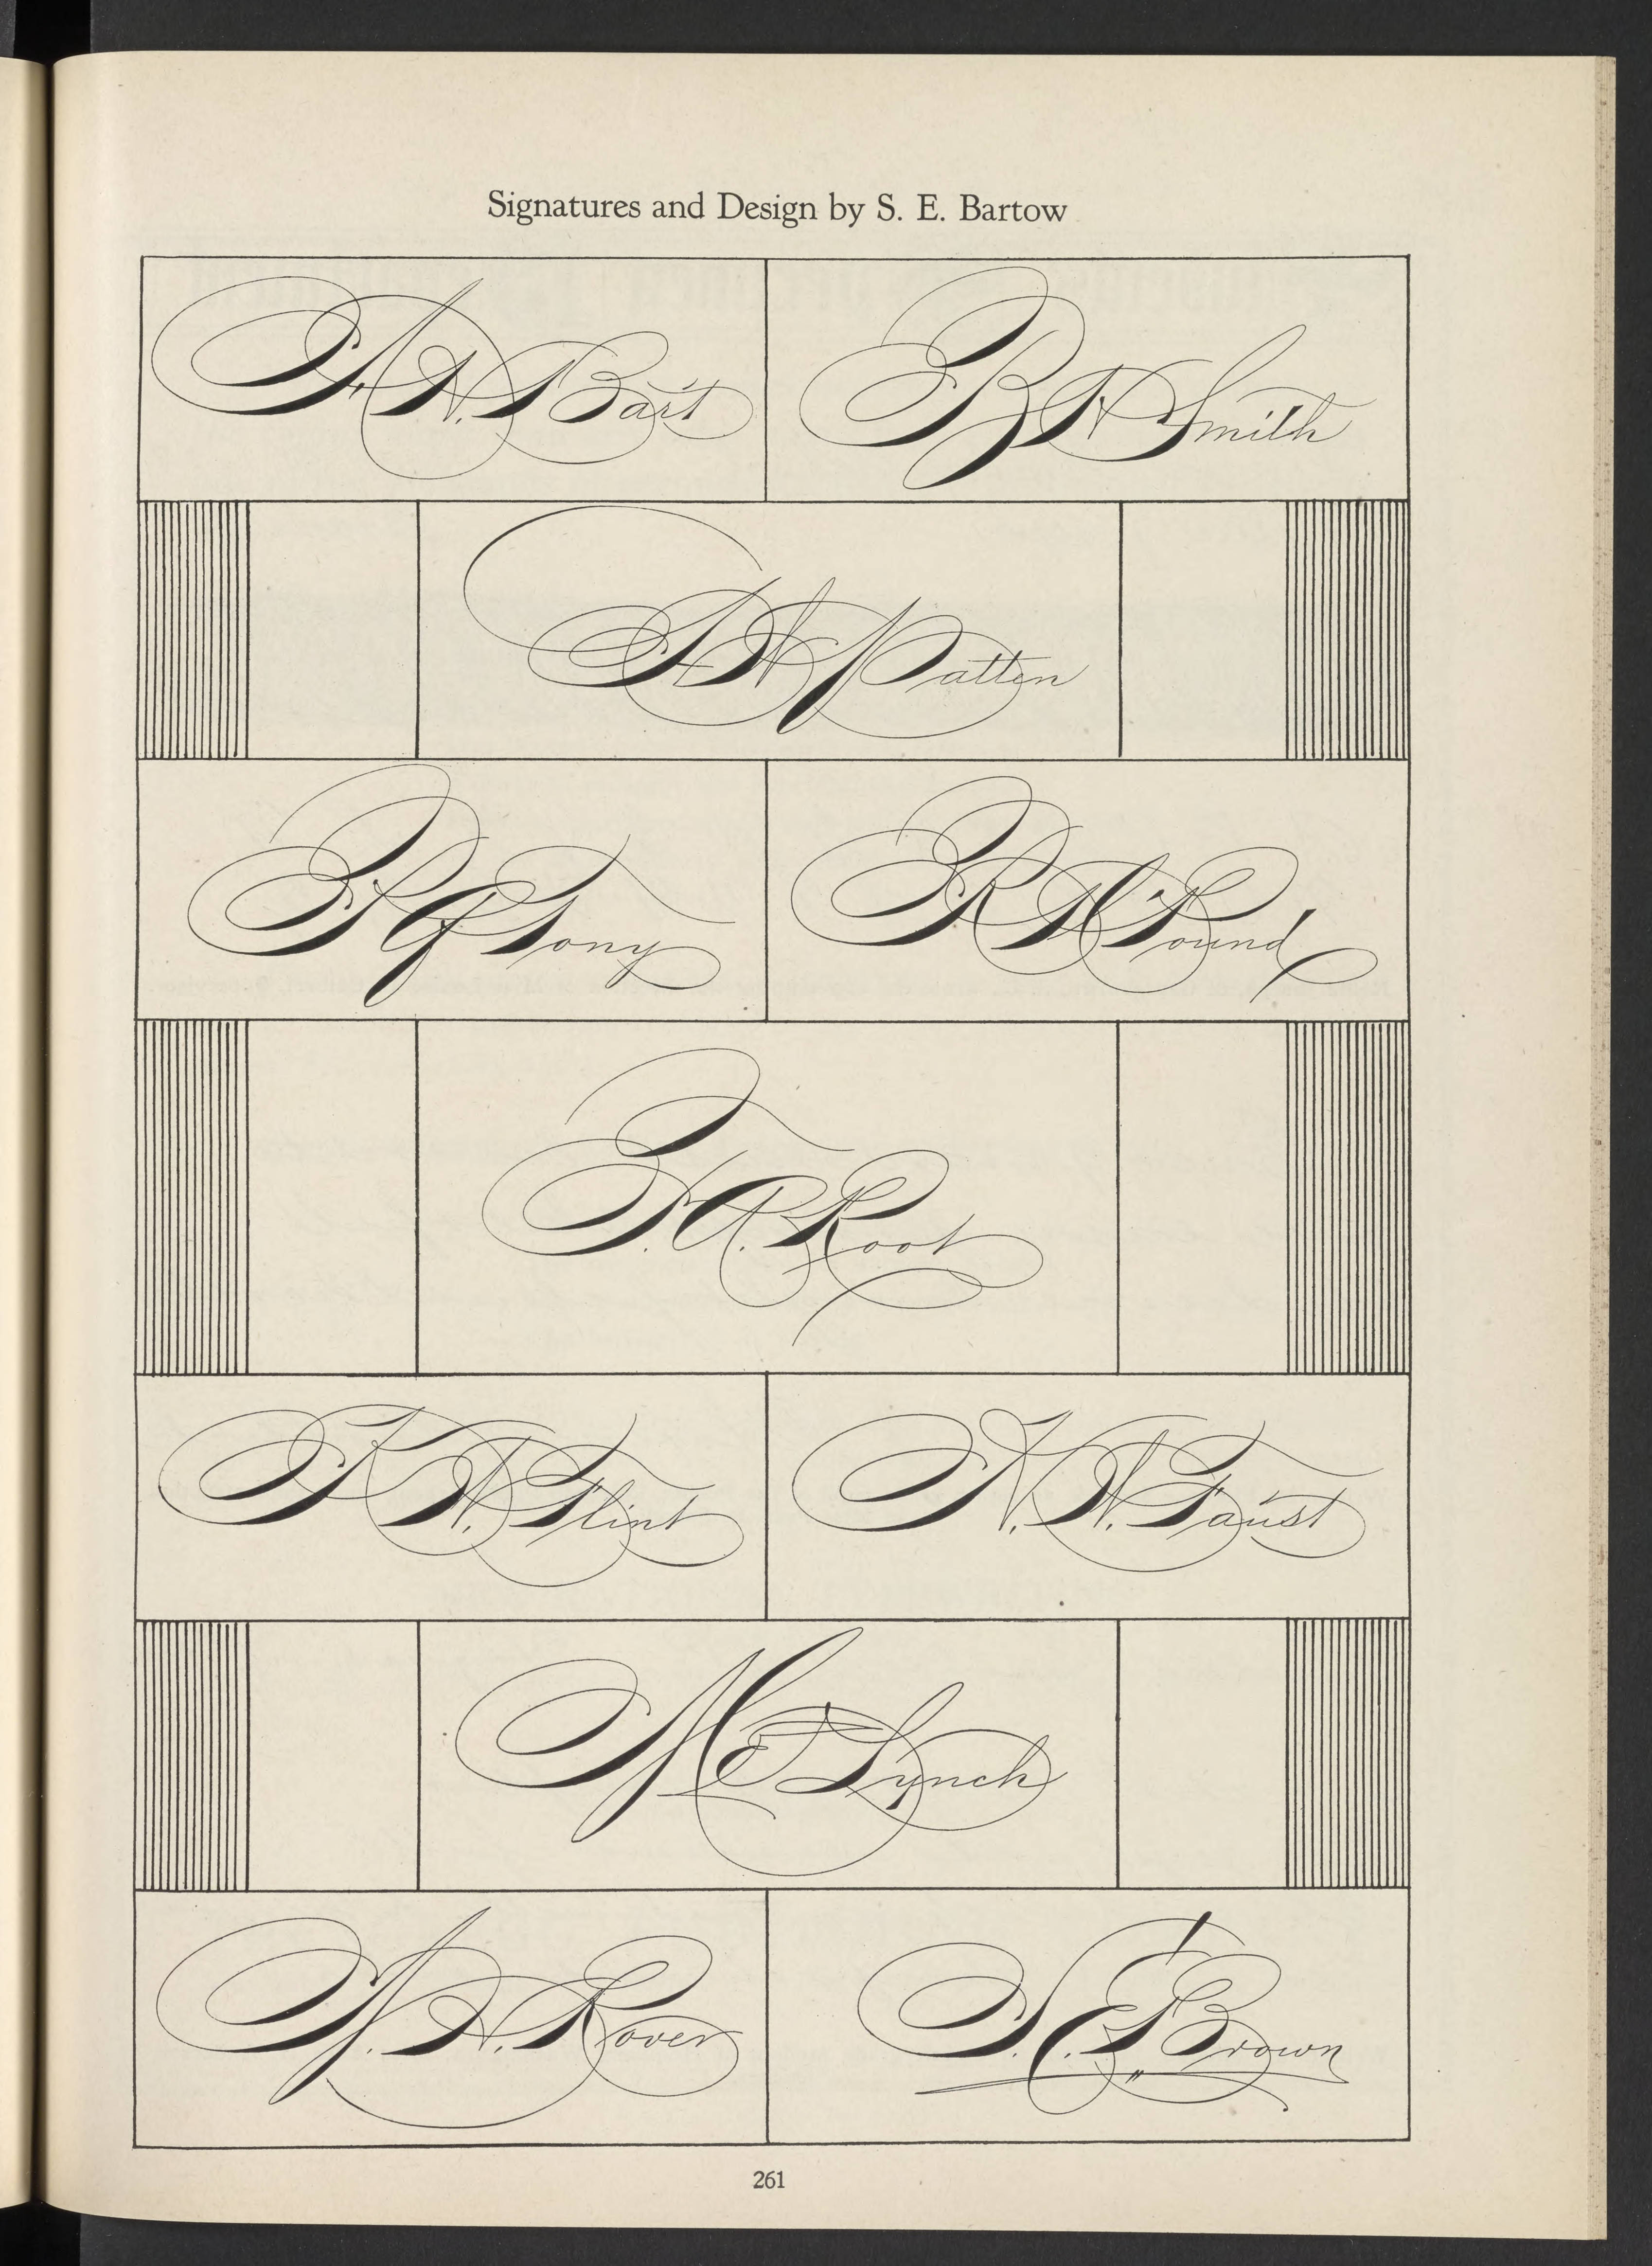 Signatures and Design by S. E. Bartow
A. N. Bart
B N Smith
Patten
P G Tony
R H Pound
F. A. Root
K N. Flint
N. N. Faust
M E Lynch
N. N. Rover
S. E. Brown
261